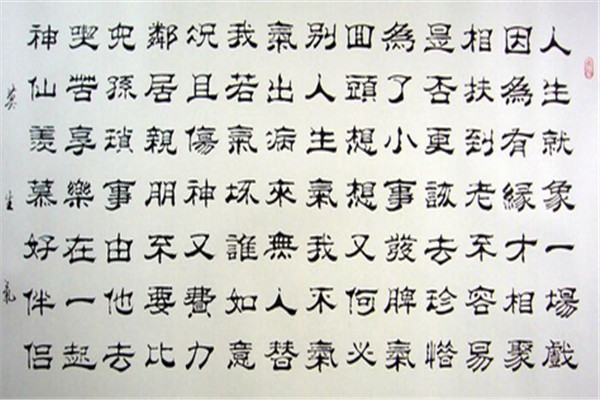 人生就象一場戲
因為有緣才相聚
相扶到老不容易
是否更該去珍惜
為了小事發脾氣
回頭想想又何必
別人生氣我不氣
氣出病來無人替
我若氣壞誰如意
況且傷神又費力
鄰居親朋不要比
兒孫瑣事由他去
喫苦享樂在一起
神仙羨慕好伴侶
莫生氣